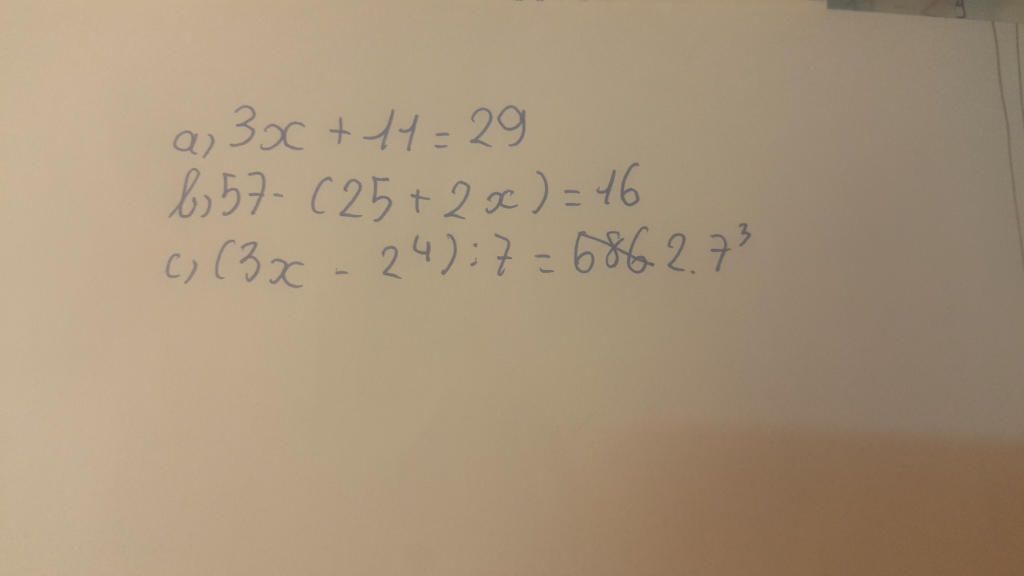 a, 3x + 11 = 29
b, 57 - (25 + 2x) = 16
c, (3x - 2⁴) : 7 = 2. 7³